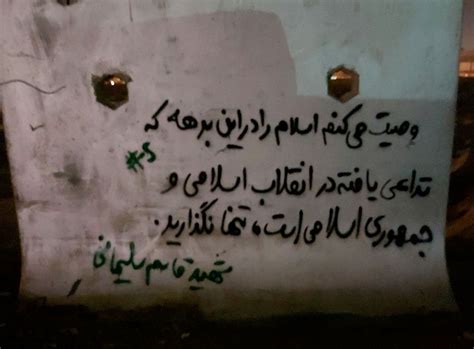 وصیت می‌کنم اسلام را در این برهه که
تداعی یافته در انقلاب اسلامی و
جمهوری اسلامی است، تنها نگذارید.
شهید قاسم سلیمانی